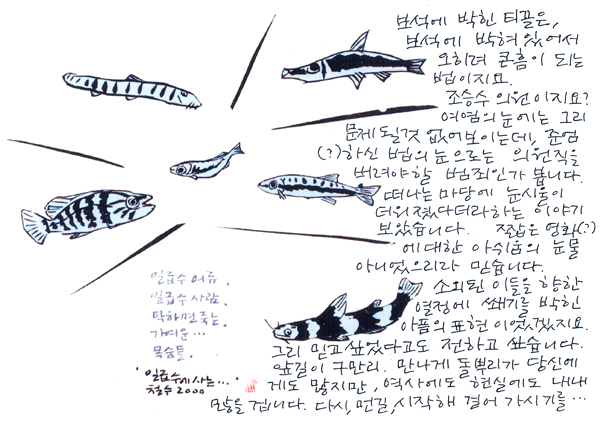 보석에 박힌 티끌은,
보석에 박혀있어서
오히려 큰흠이 되는
법이지요.
조승수 의원이지요?
여염의 눈에는 그리
문제될것 없어보이는데, 준엄
(?)하신 법의 눈으로는 의원직을
버려야할 범죄인가 봅니다.
떠나는 마당에 눈시울이
더워졌다더라하는 이야기
보았습니다. 짧은 영화(?)
에 대한 아쉬움의 눈물
아니었으리라 믿습니다.
소외된 이들을 향한
열정에 쐐기를 박힌
아픔의 표현 이었겠지요.
그리 믿고싶었다고도 전하고 싶습니다.
앞길이 구만리. 만나게 돌뿌리가 당신에
게도 많지만, 역사에도 현실에도 내내
많을 겁니다. 다시, 먼길, 시작해 걸어 가시기를…
일급수 어류.
일급수 사람.
탁하면 죽는.
가여운…
목숨들.
'일급수에 사는…'
철수 2000